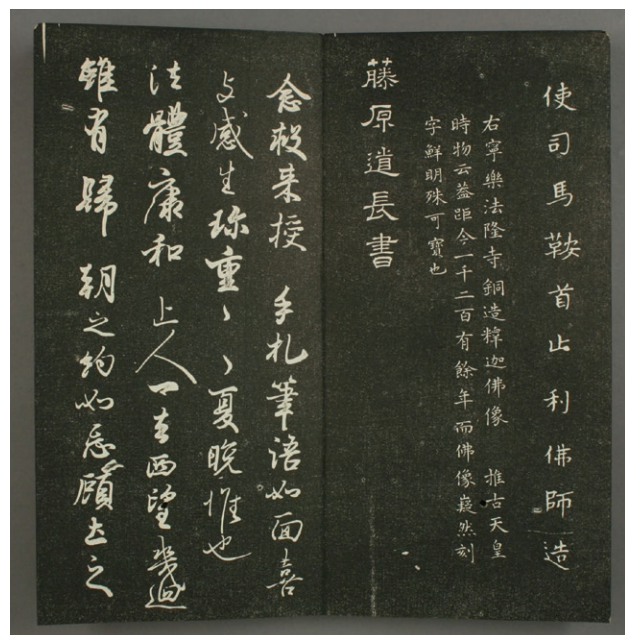 使司馬鞍首止利佛師造
右寧樂法隆寺銅造釋迦佛像 推古天皇
時物云蓋距今一千二百有餘年而佛像巍然刻
字鮮明殊可寶也
藤原道長書
念救来授 手札筆語如面喜
与感生珍重〻〻夏晩惟也
法體康和 上人一去西望幾廻
雖有歸朝之約如忘顧土之